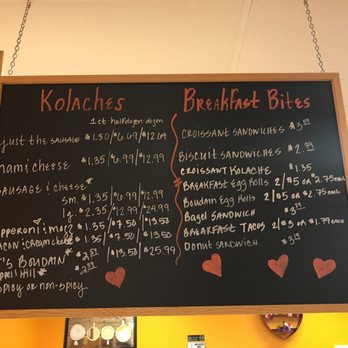 Kolaches
1ct. half dozen dozen
just the sausage $1.30/$6.69/$12.69
ham & cheese $1.35/$6.99/$12.99
sausage & cheese*
sm. $1.35/$6.99/$12.99
lg. $2.35/$12.99/$24.99
pepperoni & mozz $1.35/$7.50/$13.50
bacon & cream cheese $1.35/$7.50/$13.50
Boudain $2.89/$13.50/$25.99
Hill* $2.89
spicy or non-spicy
Breakfast Bites
Croissant Sandwiches $3.89
Biscuit Sandwiches $2.99
Croissant Kolache $1.35
*Breakfast Egg Rolls 2/$5 or $2.75 each
Boudain Egg Rolls 2/$5 or $2.75 each
Bagel Sandwich
Breakfast Tacos 2/$3 or $1.79 each
Donut Sandwich